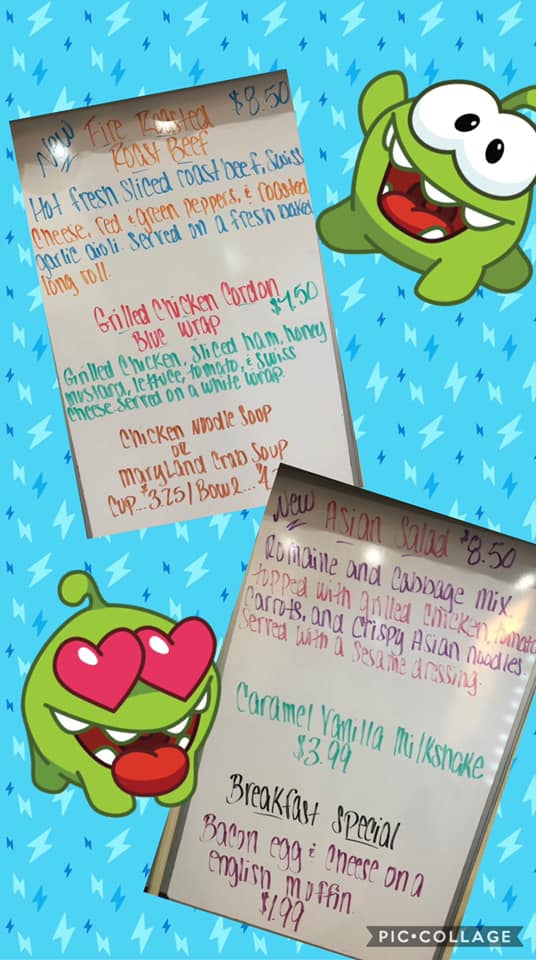 New Fire Roasted $8.50
Roast Beef
Hot fresh sliced roast beef, Swiss
Cheese, red & green peppers, & roasted
garlic aioli. Served on a fresh baked
long roll.
Grilled Chicken Cordon
Blue Wrap $7.50
Grilled Chicken, sliced ham, honey
mustard, lettuce, tomato, & Swiss
cheese. Served on a white wrap.
Chicken Noodle Soup
or
Maryland Crab Soup
Cup...$3.25/Bowl...
New Asian Salad $8.50
Romaine and Cabbage mix
topped with grilled chicken,
Carrots, and Crispy Asian noodles.
Served with a Sesame dressing.
Caramel Vanilla Milkshake
$3.99
Breakfast Special
Bacon egg & cheese on a
english muffin.
$1.99
PIC•COLLAGE